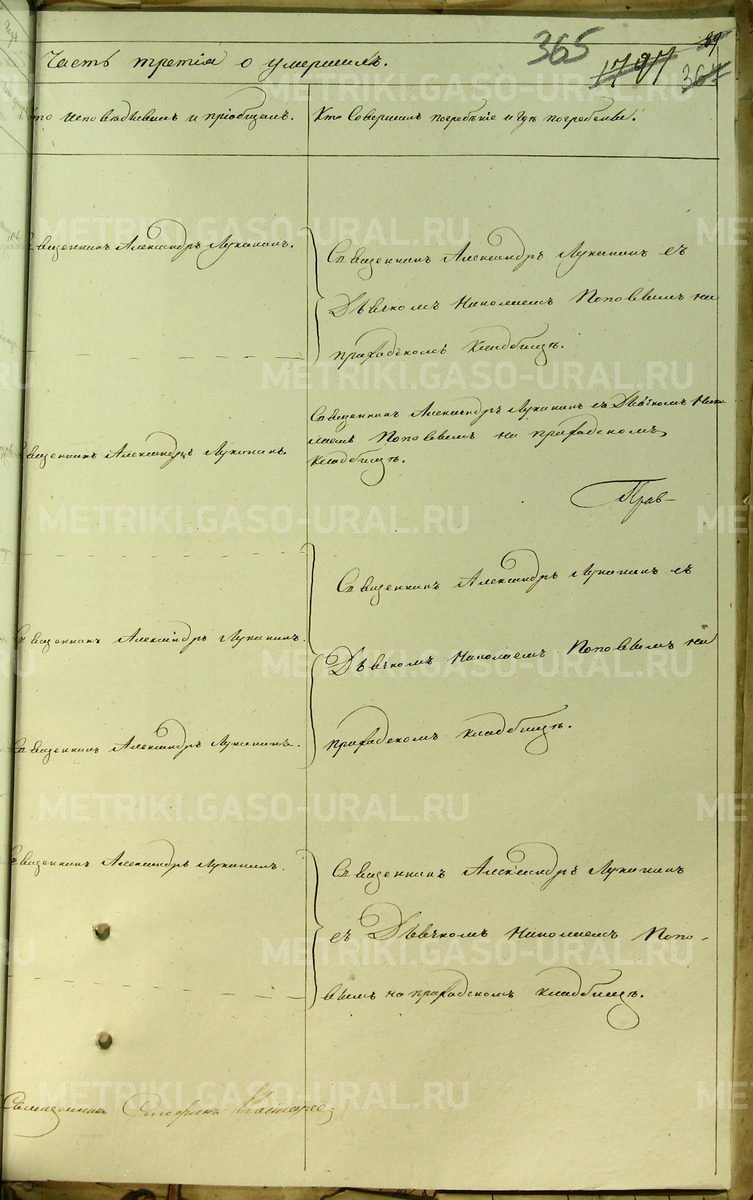 365
1797
39
364
Часть третія о умершихъ.
Кто исповѣдывалъ и пріобщалъ.
Кто Совершалъ погребѣніе и гдѣ погребены.
Священникъ Александръ Луканинъ.
Священникъ Александръ Луканинъ съ
Дьячкомъ Николаемъ Поповымъ на
приходскомъ кладбищѣ.
Священникъ Александръ Луканинъ
Священникъ Александръ Луканинъ съ Дьячкомъ Нико-
лаемъ Поповымъ на приходскомъ
кладбищѣ.
Прав-
Священникъ Александръ Луканинъ.
Священникъ Александръ Луканинъ.
Священникъ Александръ Луканинъ съ
Дьячкомъ Николаемъ Поповымъ на
приходскомъ кладбищѣ.
Священникъ Александръ Луканинъ.
Священникъ Александръ Луканинъ
съ Дьячкомъ Николаемъ Попо-
вымъ на приходскомъ кладбищѣ.
Священникъ Стефанъ
METRIKI.GASO-URAL.RU